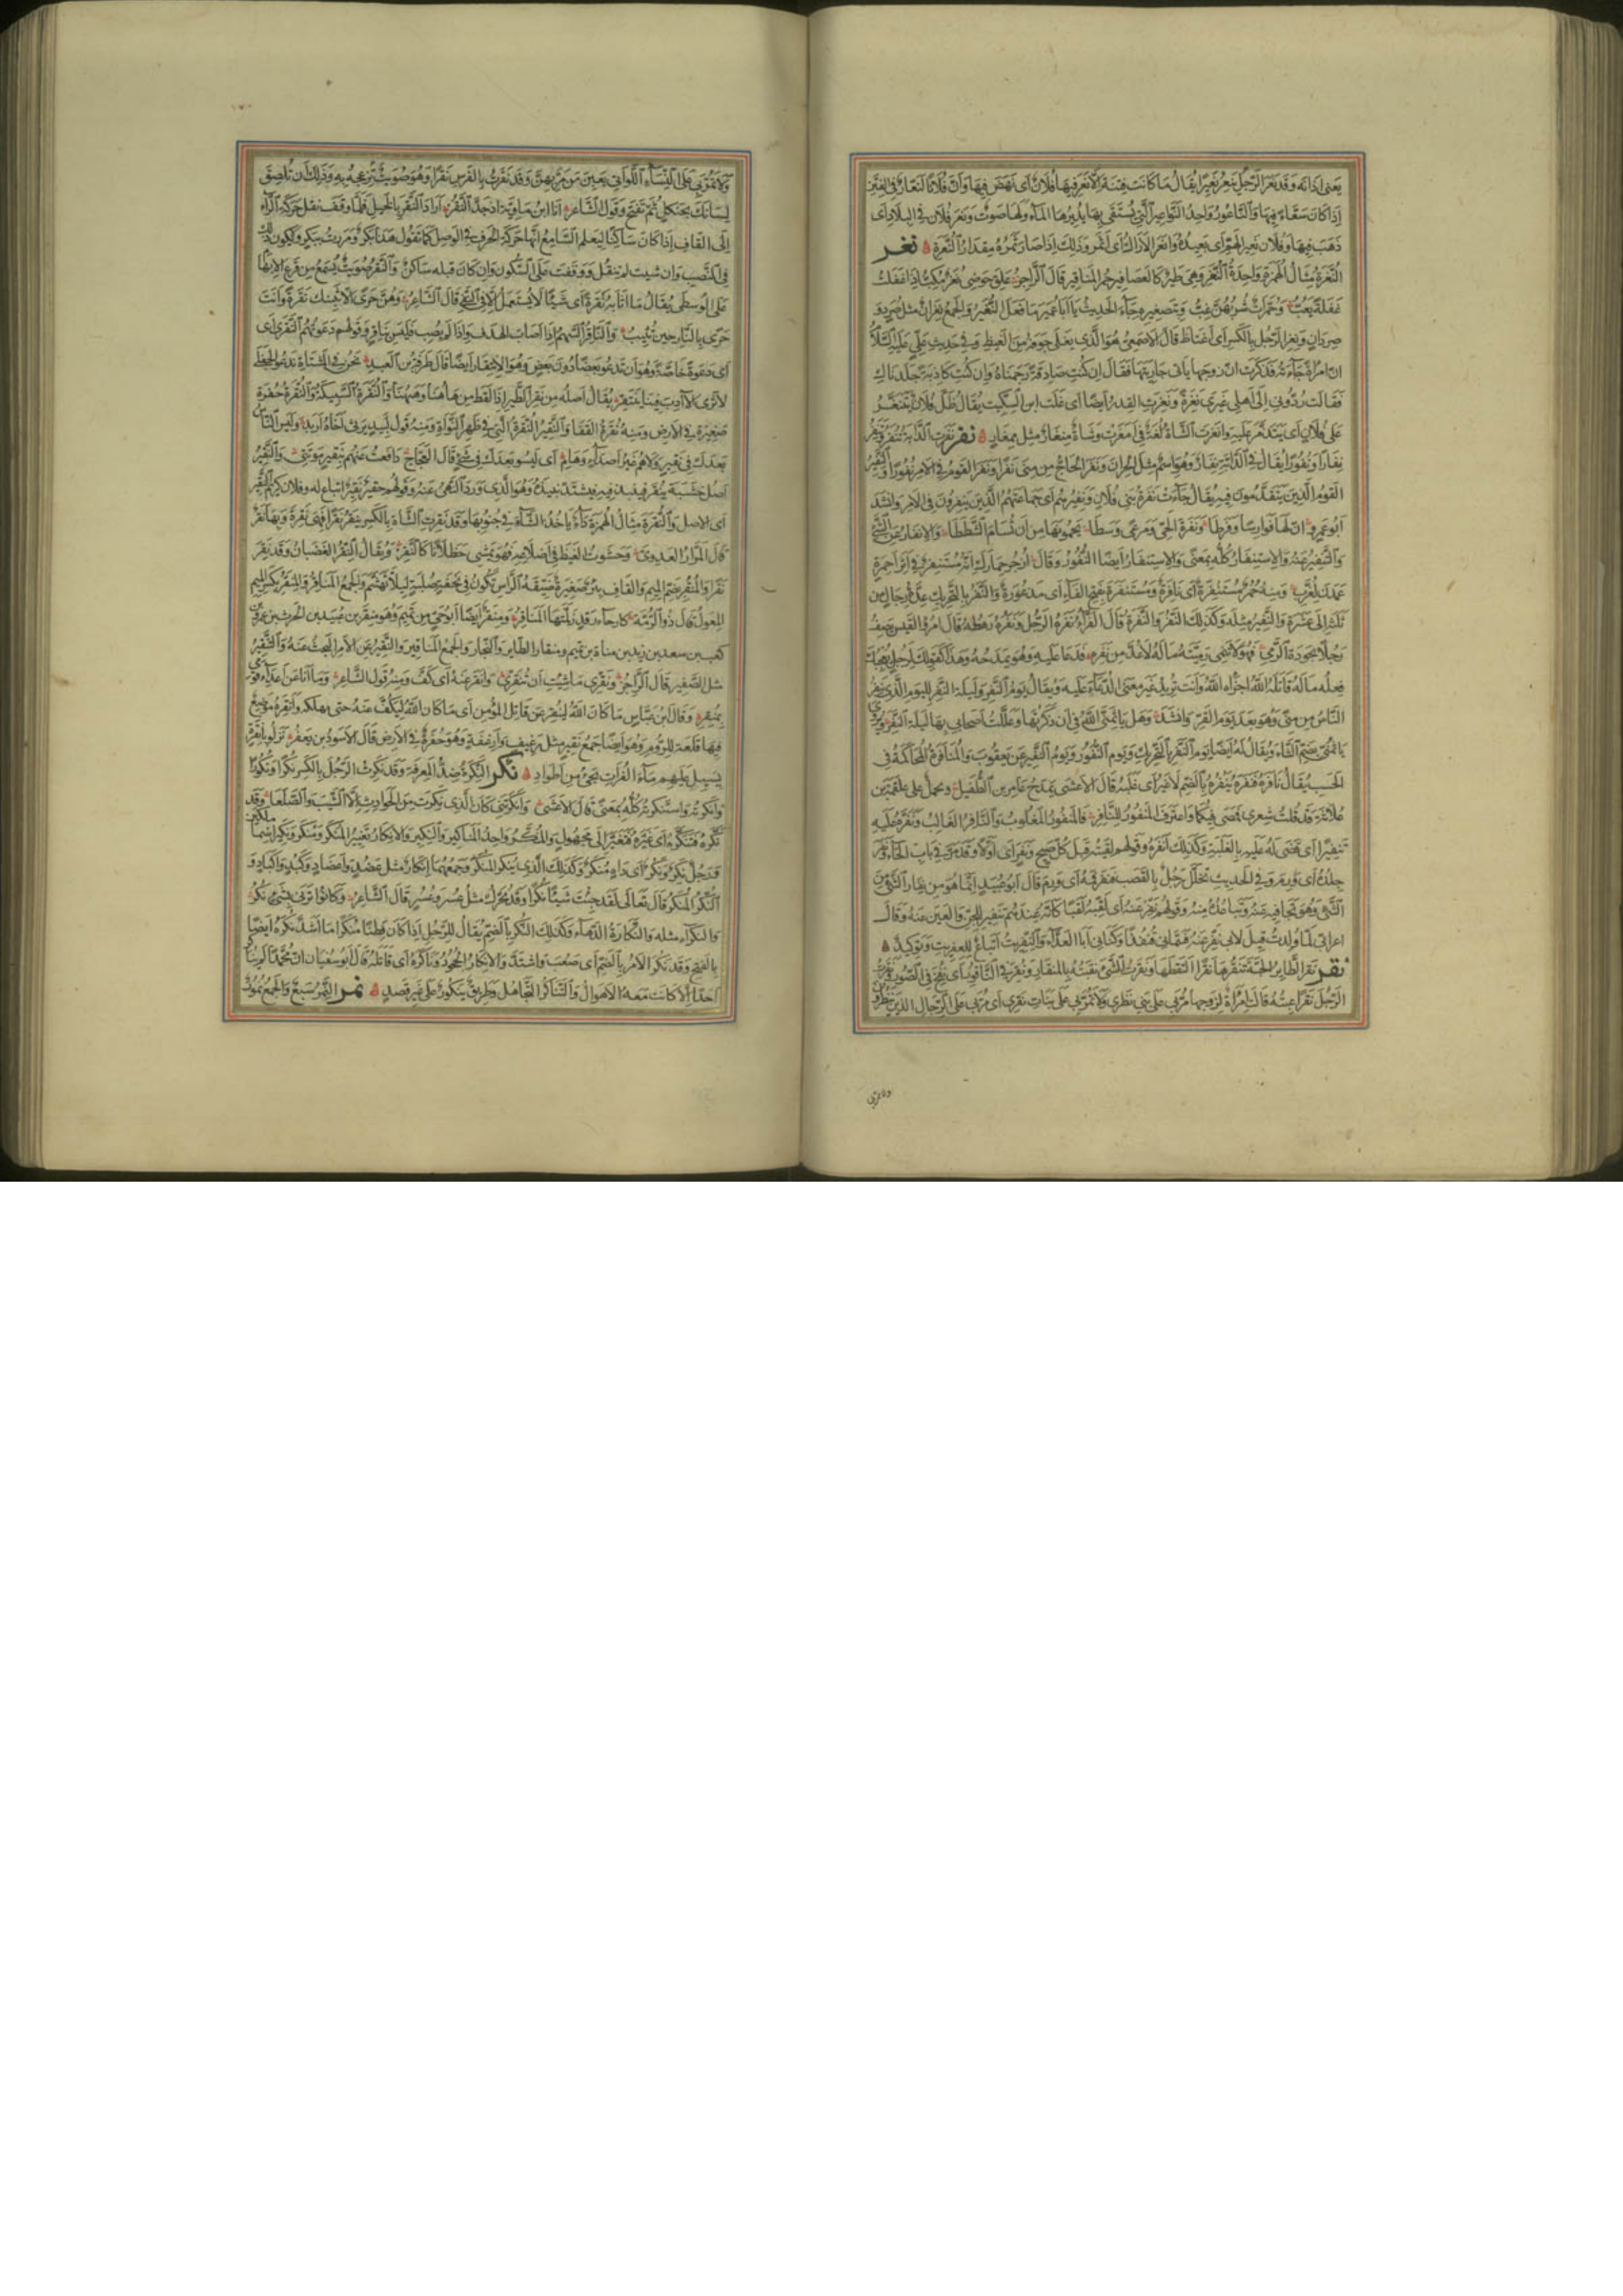 يعنى اذانه وقد نعر الرجل ينعر نعيرا يقال ما كانت فتنة الا نعر فيها فلان اى نهض فيها وان فلانا لنعار فى الفتن
اذا كان سعاء فيها والناعور واحد النواعير التى يستقى بها يديرها الماء ولها صوت ونعر فلان فى البلاد اى
ذهب فيها وفلان نعير الهم اى بعيده وانعر الاراك اى اثمر وذلك اذا صار ثمره مقدار النعرة نغر
النغرة مثال الهمزة واحدة النغر وهى طير كالعصافير حمر المناقير قال الراجز علق حوضى نغر مكب اذا غفلت
غفلة يعب وحمرات شربهن غب وبتصغيره جاء الحديث يا ابا عمير ما فعل النغير والجمع نغران مثل صرد و
صردان ونغر الرجل بالكسر اى اغتاظ قال الاصمعى هو الذى يغلى جوفه من الغيظ وفى حديث على عليه السلام
ان امراة جاءته فذكرت ان زوجها ياتى جاريتها فقال ان كنت صادقة رجمناه وان كنت كاذبة جلدناك
فقالت ردونى الى اهلى غيرى نغرة ونغرت القدر ايضا اى غلت ابن السكيت يقال ظل فلان يتنغر
على فلان اى يتذمر عليه وانغرت الشاة لغة فى امغرت وشاة منغار مثل ممغار نفر نفرت الدابة تنفر وتنفر
نفارا ونفورا يقال فى الدابة نفار وهو اسم مثل الحران ونفر الحاج من منى نفرا ونفر القوم فى الامر نفورا والنفير
القوم الذين يتقدمون فيه يقال جاءت نفرة بنى فلان ونفيرهم اى جماعتهم الذين ينفرون فى الامر وانشد
ابو عمرو ان لها فوارسا وفرطا ونفرة الحى ومرعى وسطا يحمونها من ان تسام الشططا والانفار عن الشئ
والتنفير عنه والاستنفار كله بمعنى والاستنفار ايضا النفور وقال ازجر حمارك انه مستنفر فى اثر احمرة
عمدن لغرب ومنه حمر مستنفرة اى نافرة ومستنفرة بفتح الفاء اى مذعورة والنفر بالتحريك عدة رجال من
ثلثة الى عشرة والنفير مثله وكذلك النفر والنفرة قال الفراء نفرة الرجل ونفره رهطه قال امرؤ القيس يصف
رجلا بجودة الرمى فهو لا تنمى رميته ما له لا عد من نفره فدعا عليه وهو يمدحه وهذا كقولك لرجل يعجبك
فعله ما له قاتله الله اخزاه الله وانت تريد غير معنى الدعاء عليه ويقال يوم النفر وليلة النفر لليوم الذى ينفر
الناس من منى وهو بعد يوم القر وانشد وهل ياثمنى الله فى ان ذكرتها وعللت اصحابى بها ليلة النفر ويروى
ياثمنى بضم الثاء ويقال له ايضا يوم النفر بالتحريك ويوم النفور ويوم النفير عن يعقوب والمنافرة المحاكمة فى
الحسب يقال نافره فنفره ينفره بالضم لا غير اى غلبه قال الاعشى يمدح عامر بن الطفيل ويحمل على علقمة بن
علاثة قد قلت شعرى فمضى فيكما واعترف المنفور للنافر فالمنفور المغلوب والنافر الغالب ونفره عليه
تنفيرا اى قضى له عليه بالغلبة وكذلك انفره وقولهم لقيته قبل كل صيح ونفر اى اولا وقد مر فى باب الحاء ونفر
جلده اى ورم وفى الحديث تخلل رجل بالقصب فنفر فمه اى ورم قال ابو عبيد انما هو من نفار الشئ من
الشئ وهو تجافيه عنه وتباعده منه وقولهم نفر عنه اى لقبه لقبا كانه عندهم تنفير للجن والعين عنه وقال
اعرابى لما ولدت قيل لابى نفر عنه فسمانى قنفذا وكنانى ابا العداء والنفريت اتباع للعفريت وتوكيد
نقر نقر الطاير الحبة ينقرها نقرا التقطها ونقرت الشئ نقبته بالمنقار ونقر فى الناقور اى نفخ فى الصور ونقرت
الرجل نقرا عبته قالت امراة لزوجها مر بى على بنى نظرى ولا تمر بى على بنات نقرى اى مر بى على الرجال الذين ينظرون
ولا تمر بى
ولا تمر بى على النساء اللواتى يعبن من مر بهن وقد نقرت بالفرس نقرا وهو صويت تزعجه به وذلك ان تلصق
لسانك بحنكك ثم تفتح وقول الشاعر انا ابن ماوية اذ جد النقر اراد النقر بالخيل فلما وقف نقل حركة الراء
الى القاف اذا كان ساكنا ليعلم السامع انها حركة الحرف فى الوصل كما تقول هذا بكر ومررت ببكر ولا يكون ذلك
فى النصب وان شيت لم تنقل ووقفت على السكون وان كان قبله ساكن والنقر صويت يسمع من قرع الابهام
على الوسطى يقال ما اثابه نقرة اى شيئا لا يستعمل الا فى النفى قال الشاعر وهن حرى الا يثبنك نقرة وانت
حرى بالنار حين تثيب والناقر السهم اذا اصاب الهدف واذا لم يصب فليس بناقر وقولهم دعوتهم النقرى اى
اى دعوة خاصة وهو ان تدعو بعضا دون بعض وهو الانتقار ايضا قال طرفة بن العبد نحن فى المشتاة ندعو الجفلى
لا ترى الآدب فينا ينتقر يقال اصله من نقر الطير اذا لقط من هاهنا وهاهنا والنقرة السبيكة والنقرة حفرة
صغيرة فى الارض ومنه نقرة القفا والنقير النقرة التى فى ظهر النواة ومنه قول لبيد يرثى اخاه اربد وليس الناس
بعدك فى نقير ولا هم غير اصداء وهام اى ليسو بعدك فى شئ قال العجاج دافعت عنهم بنقير موتتى والنقير
اصل خشبة ينقر فينبذ فيه فيشتد نبيذه وهو الذى ورد النهى عنه وقولهم حقير نقير اتباع له وفلان كريم النقير
اى الاصل والنقرة مثال الهمزة داء ياخذ الشاة فى جنوبها وقد نقرت الشاة بالكسر تنقر نقرا فهى نقرة وبها نقر
قال المرار العدوى وحشوت الغيظ فى اضلاعه فهو يمشى حظلانا كالنقر ويقال النقر الغضبان وقد نقر
نقرا والمنقر بضم الميم والقاف بئر صغيرة ضيقة الراس تكون فى نجفة صلبة ليلا تهشم والجمع المناقر والمنقر بكسر الميم
المعول قال ذو الرمة كارحاء رقد زلمتها المناقر ومنقر ايضا ابو حى من تميم وهو منقر بن عبيد بن الحرث بن عمرو بن
كعب بن سعد بن زيد بن مناة بن تميم ومنقار الطاير والنجار والجمع المناقير والتنقير عن الامر البحث عنه والتنقير
مثل الصفير قال الراجز ونقرى ما شيت ان تنقرى وانقر عنه اى كف ومنه قول الشاعر وما انا عن اعداء قومى
بمنقر وقال ابن عباس ما كان الله لينقر عن قاتل المؤمن اى ما كان الله ليكف عنه حتى يهلكه وانقره موضع
فيها قلعة للروم وهو ايضا جمع نقير مثل رغيف وارغفة وهو حفرة فى الارض قال الاسود بن يعفر نزلوا بانقرة
يسيل عليهم ماء الفرات يجئ من اطواد نكر النكرة ضد المعرفة وقد نكرت الرجل بالكسر نكرا ونكورا
وانكرته واستنكرته كله بمعنى قال الاعشى وانكرتنى وما كان الذى نكرت من الحوادث الا الشيب والصلعا وقد
نكره فتنكر اى غيره فتغير الى مجهول والمنكر واحد المناكير والنكير والانكار تغيير المنكر ومنكر ونكير اسما ملكين
ورجل نكر ونكر اى داه منكر وكذلك الذى ينكر المنكر وجمعهما انكار مثل عضد واعضاد وكبد واكباد و
النكر المنكر قال تعالى لقد جئت شيئا نكرا وقد يحرك مثل عسر وعسر قال الشاعر وكانوا اتونى بشئ نكر
والنكراء مثله والنكارة الدهاء وكذلك النكر بالضم يقال للرجل اذا كان فطنا منكرا ما اشد نكره ايضا
بالفتح وقد نكر الامر بالضم اى صعب واشتد والانكار الجحود وناكره اى قاتله قال ابو سفيان ان محمدا لم يناكر
احدا الا كانت معه الاهوال والتناكر التجاهل وطريق ينكور على غير قصد نمر النمر سبع والجمع نمور